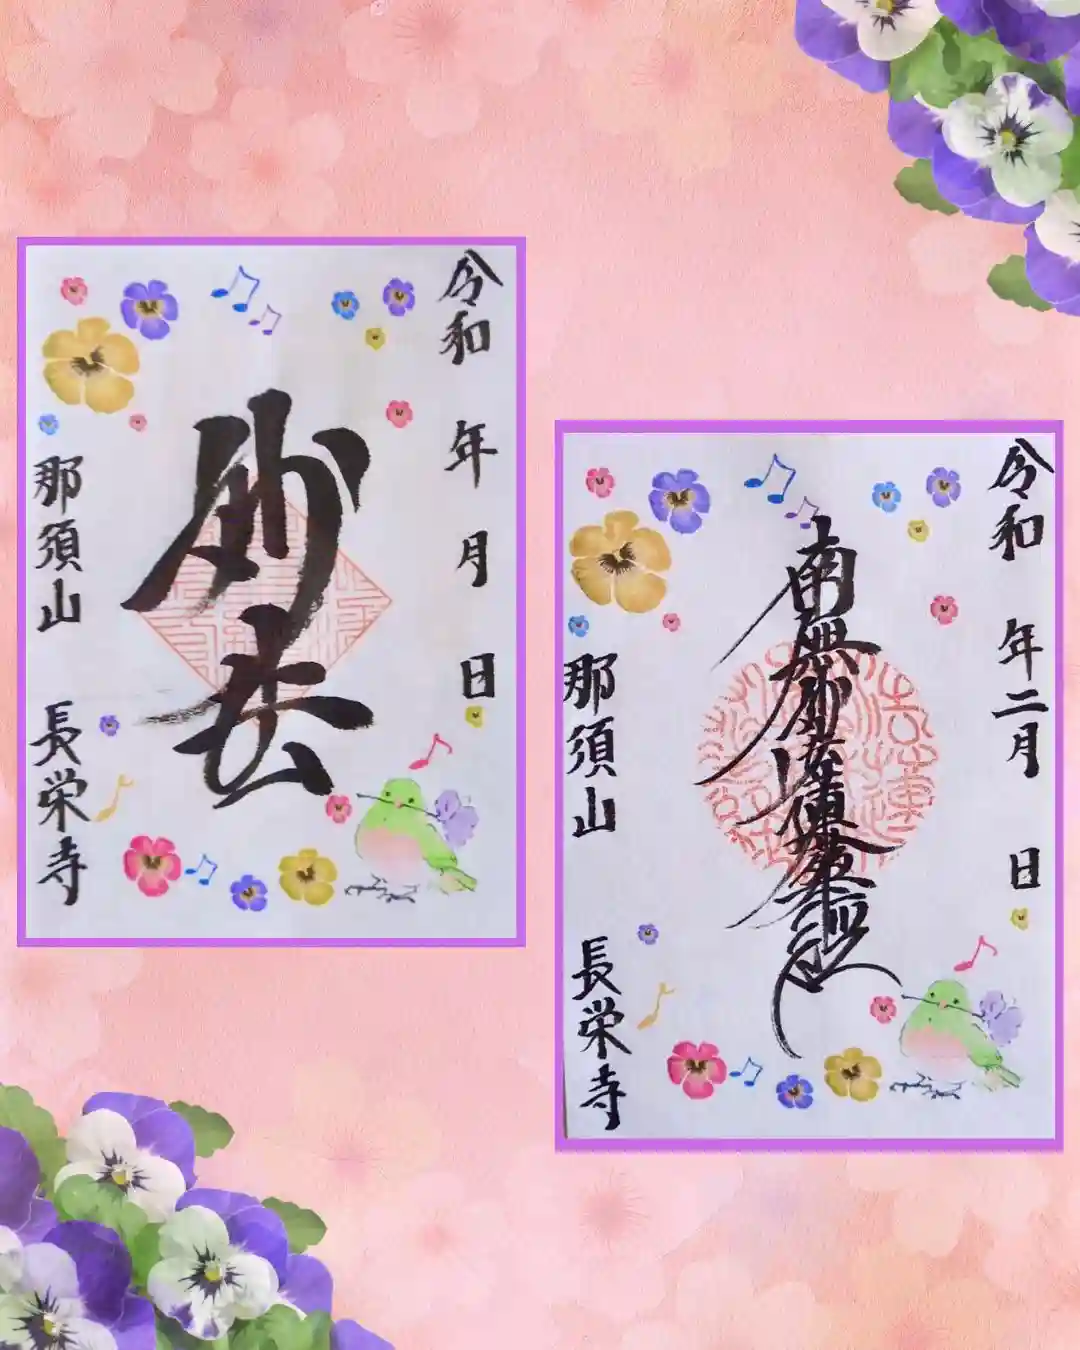 令和 年 月 日
妙法
那須山 長栄寺
令和 年二月 日
南無妙法蓮華経
那須山 長栄寺